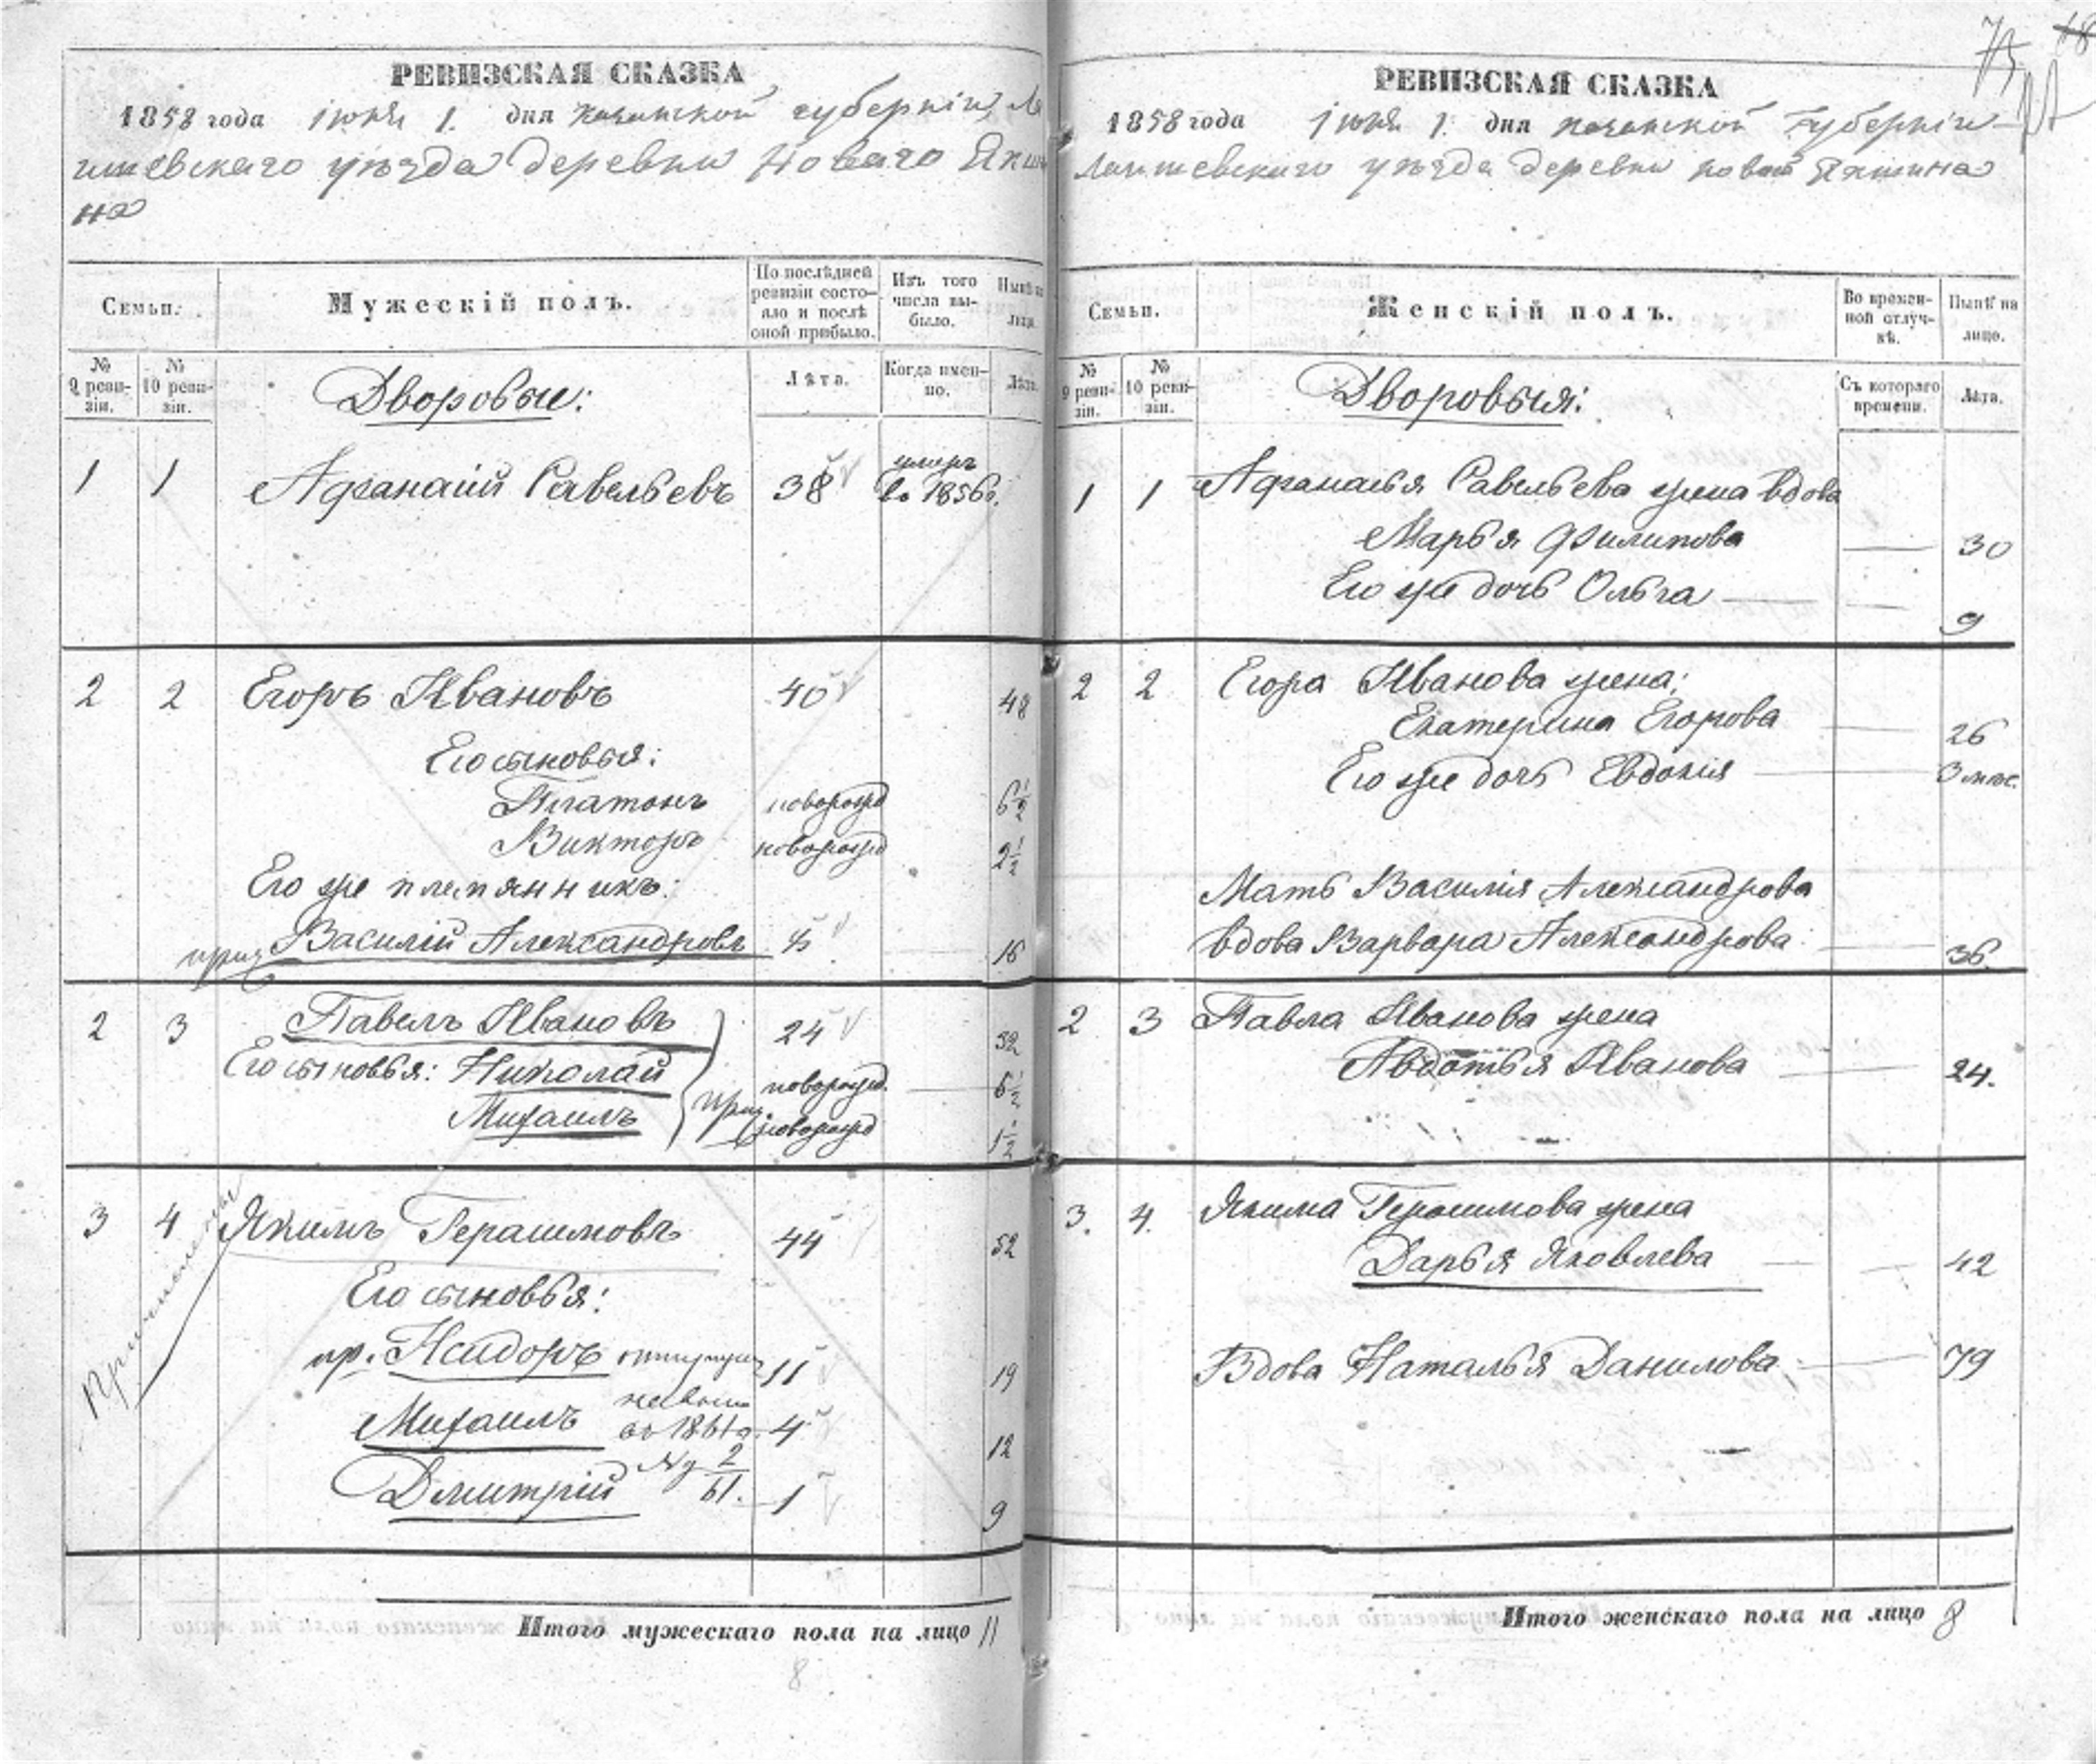 75
РЕВИЗСКАЯ СКАЗКА
1858 года іюня 1. дня Казанской губерніи, Ла
ишевскаго уѣзда деревни Новаго Якши
на
Семьи.
Мужескій полъ.
По послѣдней ревизіи состояло и послѣ оной прибыло.
Изъ того числа выбыло.
Нынѣ на лицо.
№ 9 ревизіи.
№ 10 ревизіи.
Дворовые:
Лѣта.
Когда именно.
Лѣта.
1 1 Афанасій Савельевъ 38 умеръ въ 1856 г.
2 2 Егоръ Ивановъ 40 48
Его сыновья:
Платонъ новорожд 6 1/2
Викторъ новорожд 2 1/2
Его же племянникъ:
Василій Александровъ 16
2 3 Павелъ Ивановъ 24 32
Его сыновья: Николай новорожд. 6 1/2
Михаилъ новорожд 1 1/2
3 4 Якимъ Герасимовъ 44 52
Его сыновья:
пр. Исидоръ 11 19
Михаилъ 4 12
Дмитрій 1 9
Итого мужескаго пола на лицо 11
8
РЕВИЗСКАЯ СКАЗКА
1858 года іюня 1. дня Казанской Губерніи
Лаишевскаго уѣзда деревни Новой Якшина
Семьи.
Женскій полъ.
Во временной отлучкѣ.
Нынѣ на лицо.
№ 9 ревизіи.
№ 10 ревизіи.
Дворовыя:
Съ котораго времени.
Лѣта.
1 1 Афанасья Савельева жена вдова
Марья Филипова 30
Его же дочь Ольга 9
2 2 Егора Иванова жена:
Екатерина Егорова 26
Его же дочь Евдокія 3 мѣс.
Мать Василія Александрова
вдова Варвара Александрова 36.
2 3 Павла Иванова жена
Авдотья Иванова 24.
3. 4. Якима Герасимова жена
Дарья Яковлева 42
Вдова Наталья Данилова 79
Итого женскаго пола на лицо 8